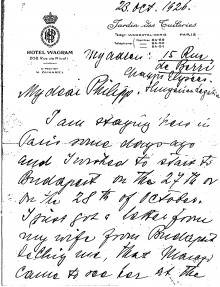 28 Oct. 1926.
Jardin des Tuileries
HOTEL WAGRAM
208 Rue de Rivoli
PARIS
My adress: 15 Rue
de Berri
Champs Elysées.
My dear Philipp.
I am staying here in
Paris some days ago
and I wished to start to
Budapest on the 27th or
on the 28th of October.
I just got a letter from
my wife from Budapest
telling me, that
came to see her at the